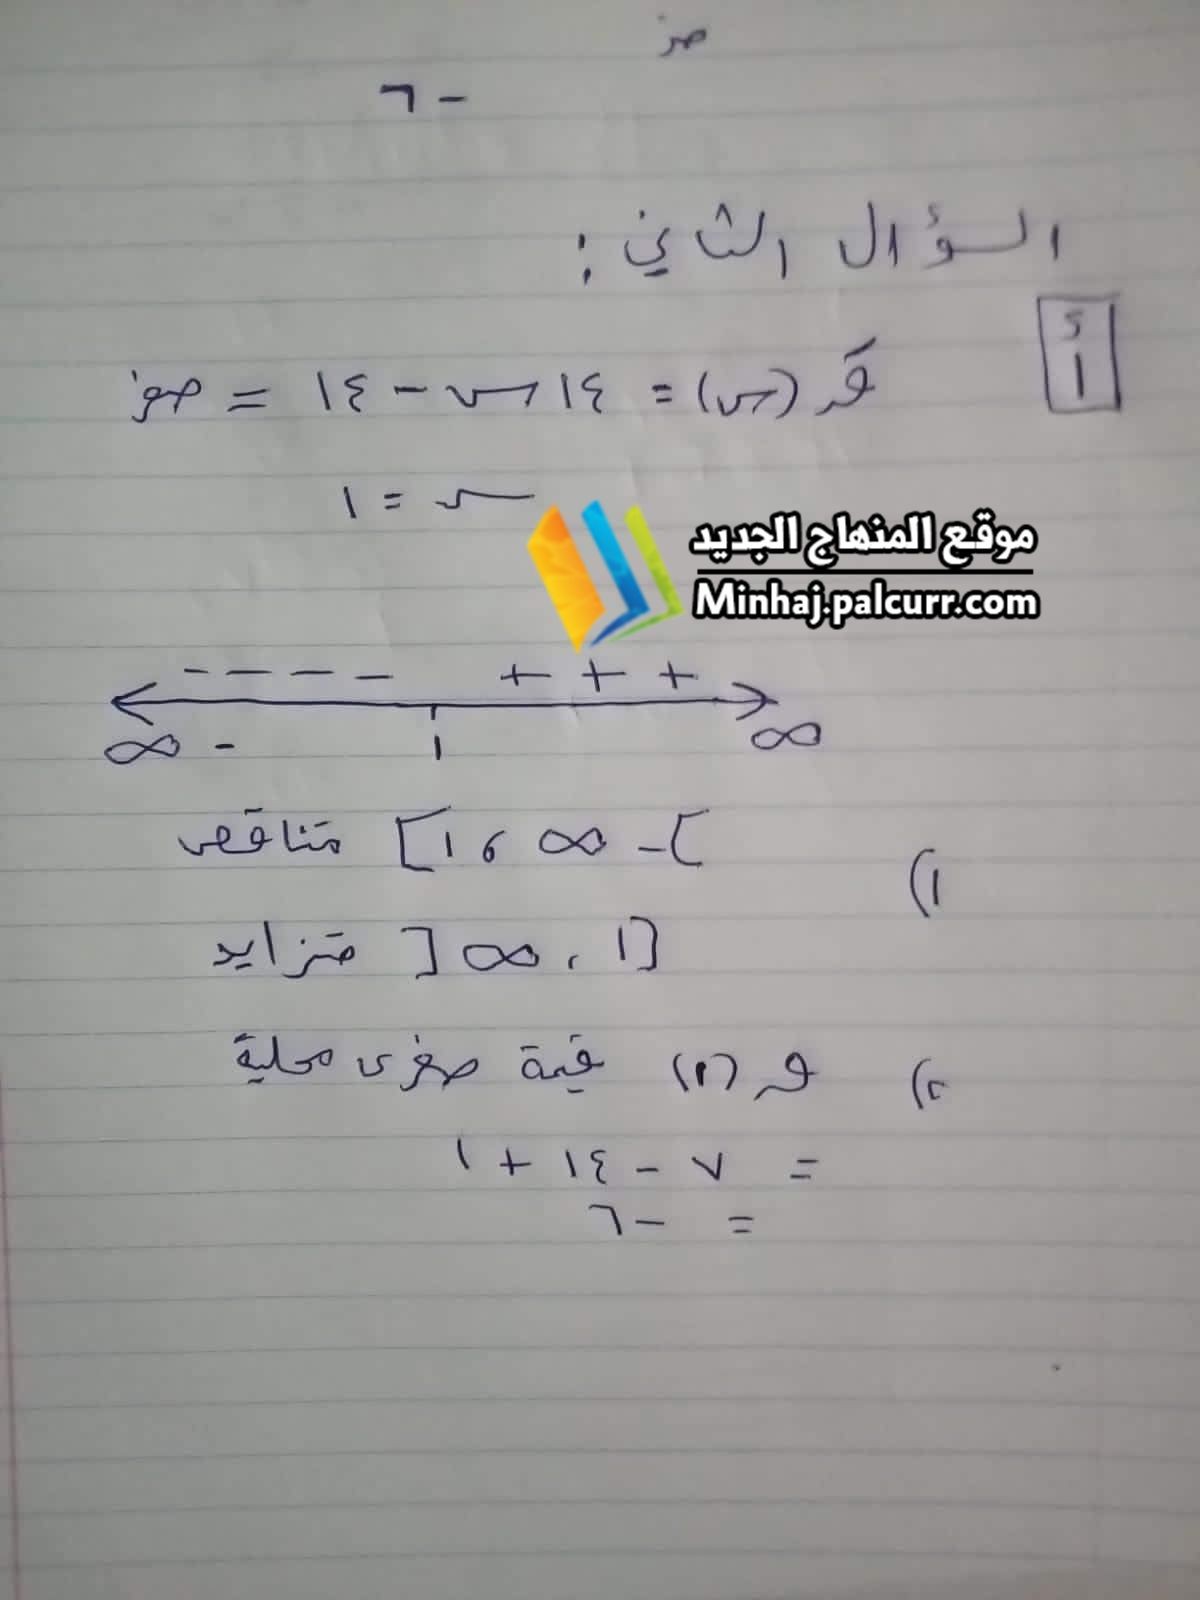 صفر
- ٦
السؤال الثاني :
أ
قَ (س) = ١٤ س - ١٤ = صفر
س = ١
موقع المنهاج الجديد
Minhaj.palcurr.com
- - - - + + +
- ∞ ١ ∞
١) ]- ∞ ، ١] متناقص
[١ ، ∞ [ متزايد
٢) ق (١) قيمة صغرى محلية
= ٧ - ١٤ + ١
= - ٦